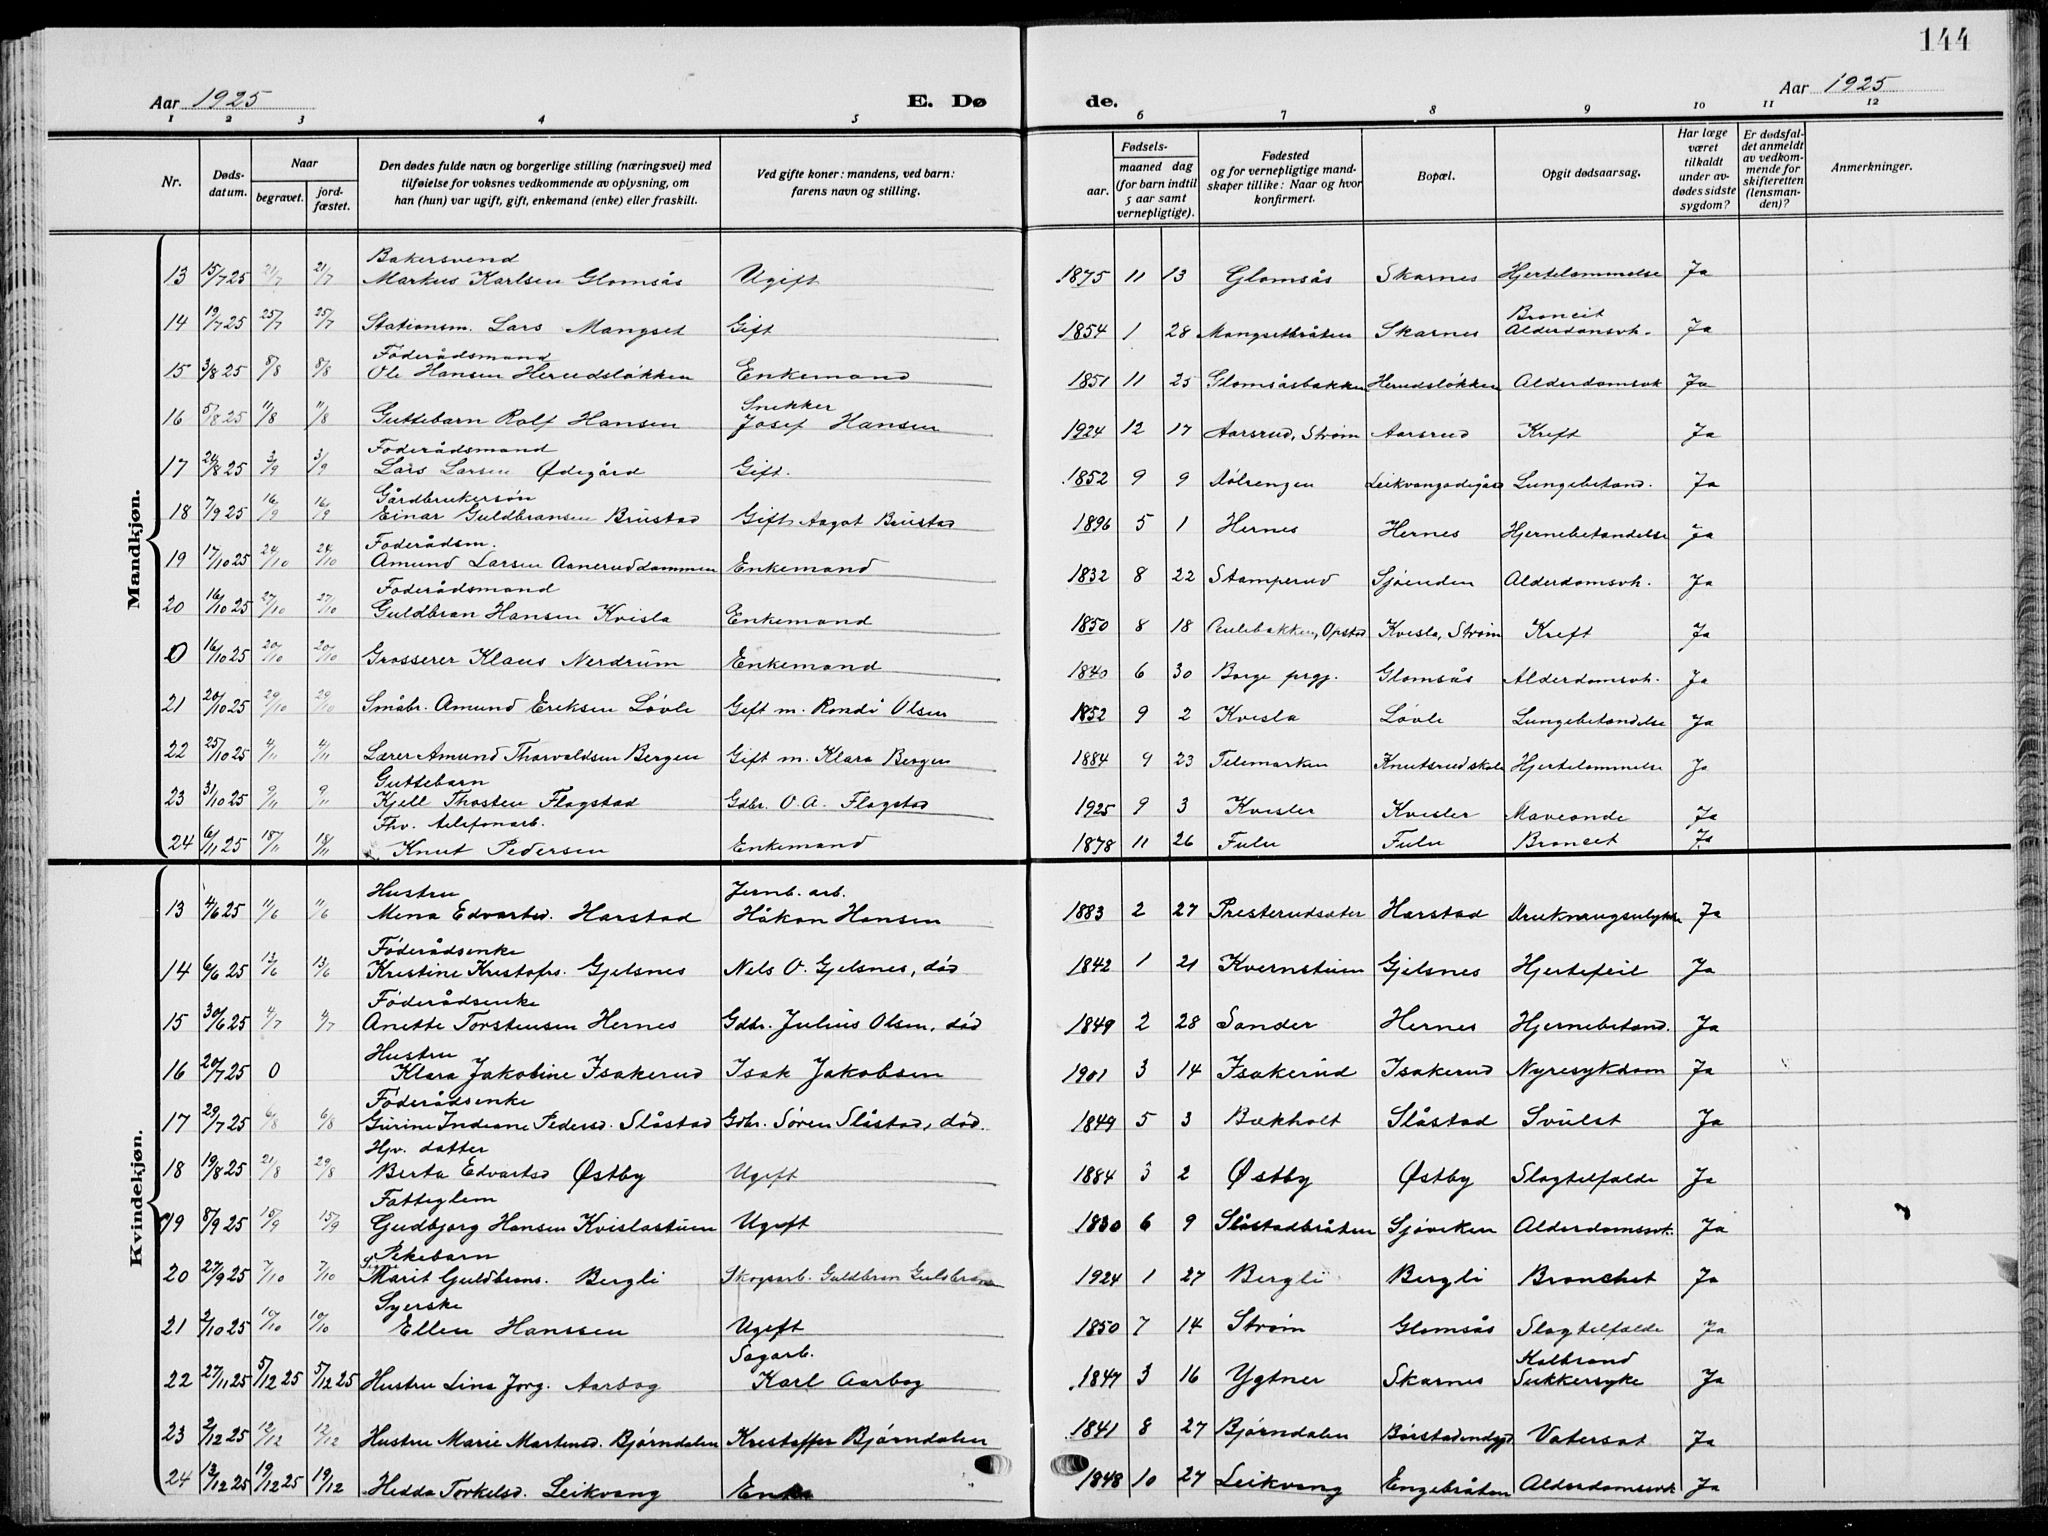 144
Aar 1925
E. Dø
de.
Aar 1925
1 2 3 4 5 6 7 8 9 10 11 12
Nr.
Døds-
datum.
Naar
begravet.
jord-
fæstet.
Den dødes fulde navn og borgerlige stilling (næringsvei) med
tilføielse for voksnes vedkommende av oplysning, om
han (hun) var ugift, gift, enkemand (enke) eller fraskilt.
Ved gifte koner: mandens, ved barn:
farens navn og stilling.
Fødsels-
aar.
maaned dag
(for barn indtil
5 aar samt
vernepligtige).
Fødested
og for vernepligtige mand-
skaper tillike: Naar og hvor
konfirmert.
Bopæl.
Opgit dødsaarsag.
Har læge
været
tilkaldt
under av-
dødes sidste
sygdom?
Er dødsfal-
det anmeldt
av vedkom-
mende for
skifteretten
(lensman-
den)?
Anmerkninger.
Mandkjøn.
Bakersvend
13 15/7 25 21/7 21/7 Markus Karlsen Glomsås Ugift 1875 11 13 Glomsås Skarnes Hjertelammelse Ja
Broncit
14 19/7 25 25/7 25/7 Stationsm. Lars Mangset Gift 1854 1 28 Mangsetbråten Skarnes Alderdomsvk. Ja
Føderådsmand
15 3/8 25 8/8 8/8 Ole Hansen Herudsløkken Enkemand 1851 11 25 Glomsåsbakken Herudsløkken Alderdomsvk Ja
Snekker
16 5/8 25 11/8 11/8 Guttebarn Rolf Hansen Josef Hansen 1924 12 17 Aarsrud, Strøm Aarsrud Kreft Ja
Føderådsmand
17 24/8 25 3/9 3/9 Lars Larsen Ødegård Gift. 1852 9 9 Leikvangødegård Lungebetænd. Ja
Gårdbrukersøn
18 7/9 25 16/9 16/9 Einar Guldbransen Brustad Gift Aagot Brustad 1896 5 1 Hernes Hernes Hjernebetændelse Ja
Føderådsm.
19 17/10 25 24/10 24/10 Amund Larsen Aaneruddammen Enkemand 1832 8 22 Stamperud Sjøenden Alderdomsvk. Ja
Føderådsmand
20 16/10 25 27/10 27/10 Guldbran Hansen Kvisla Enkemand 1850 8 18 Opstad Kvisla, Strøm Kreft Ja
0 16/10 25 20/10 20/10 Grosserer Klaus Nerdrum Enkemand 1840 6 30 Borge prgj. Glomsås Alderdomsvk. Ja
21 20/10 25 29/10 29/10 Småbr. Amund Eriksen Løvle Gift m. Rondi Olsen 1852 9 2 Kvisla Løvle Lungebetændelse Ja
22 25/10 25 4/11 4/11 Lærer Amund Thorvaldsen Bergen Gift m. Klara Bergen 1884 9 23 Telemarken Knutsrud skole Hjertelammelse Ja
Guttebarn
23 31/10 25 9/11 9/11 Kjell Thosten Flagstad Gdbr. O. A. Flagstad 1925 9 3 Kvisler Kvisler Maveonde Ja
Fhv. telefonarb.
24 6/11 25 18/11 18/11 Knut Pedersen Enkemand 1878 11 26 Fulu Fulu Broncit Ja
Kvindekjøn.
Hustru Jernb. arb.
13 4/6 25 11/6 11/6 Mena Edvartsd. Harstad Håkon Hansen 1883 2 27 Presterudsæter Harstad Ja
Føderådsenke
14 6/6 25 13/6 13/6 Kristine Kristofrs. Gjelsnes Nels O. Gjelsnes, død 1842 1 21 Kvernstuen Gjelsnes Hjertefeil Ja
Føderådsenke
15 30/6 25 4/7 4/7 Anette Torstensen Hernes Gdbr. Julius Olsen, død 1849 2 28 Sander Hernes Hjernebetænd. Ja
Hustru
16 20/7 25 0 Klara Jakobine Isakerud Isak Jakobsen 1901 3 14 Isakerud Isakerud Nyresykdom Ja
Føderådsenke
17 29/7 25 6/8 6/8 Gurine Indiane Pedersd. Slåstad Gdbr. Søren Slåstad, død. 1849 5 3 Bækholt Slåstad Svulst Ja
Hpv. datter
18 19/8 25 21/8 29/8 Berta Edvartsd Østby Ugift 1884 3 2 Østby Østby Slagtilfælde Ja
Fattiglem
19 8/9 25 15/9 15/9 Gudbjorg Hansen Kvislastuen Ugift 1830 6 9 Slåstadbråten Sjøviken Alderdomssvk. Ja
Pikebarn
20 27/9 25 7/10 7/10 Signe Marit Guldbrans. Bergli Skogsarb. Guldbran Guldbransen 1924 1 27 Bergli Bergli Bronchit Ja
Syerske
21 2/10 25 10/10 10/10 Ellen Hanssen Ugift 1850 7 14 Strøm Glomsås Slagtilfælde Ja
Sagarb. Kolbrand
22 27/11 25 5/12 25 5/12 25 Hustru Lina Jørg. Aarbog Karl Aarbog 1847 3 16 Ygtner Skarnes Sukkersyke Ja
23 2/12 25 12/12 12/12 Hustru Marie Martinsd. Bjørndalen Kristoffer Bjørndalen 1841 8 27 Bjørndalen Vatersot Ja
24 13/12 25 19/12 25 19/12 Hedda Torkelsd. Leikvang Enke 1848 10 27 Leikvang Engebråten Alderdomssvk Ja